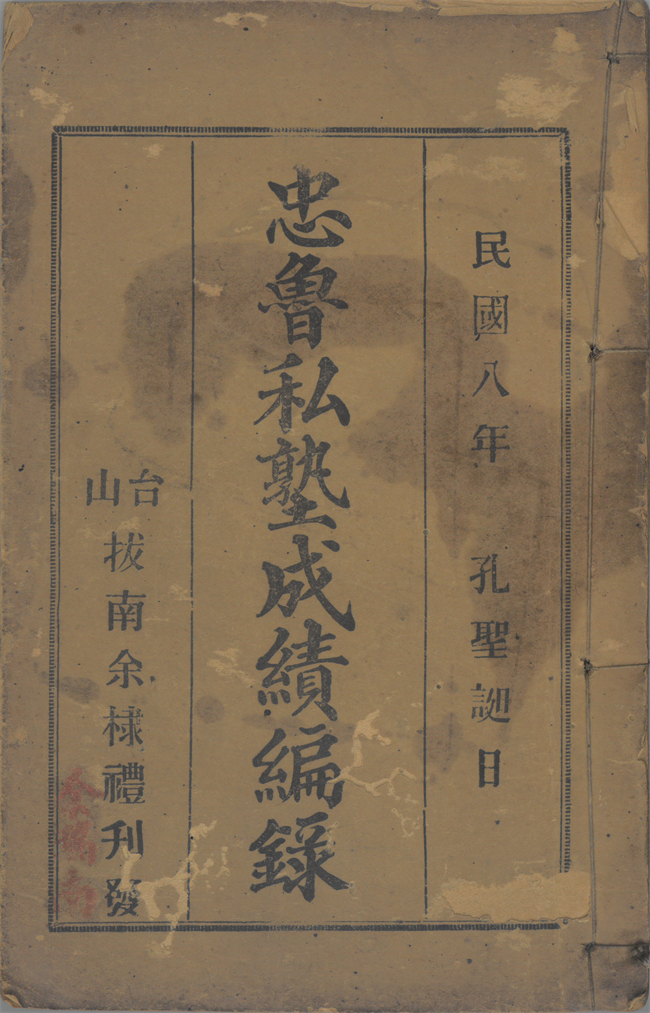 民國八年 孔聖誕日
忠魯私塾成績編錄
台山
拔南余棣禮刊發